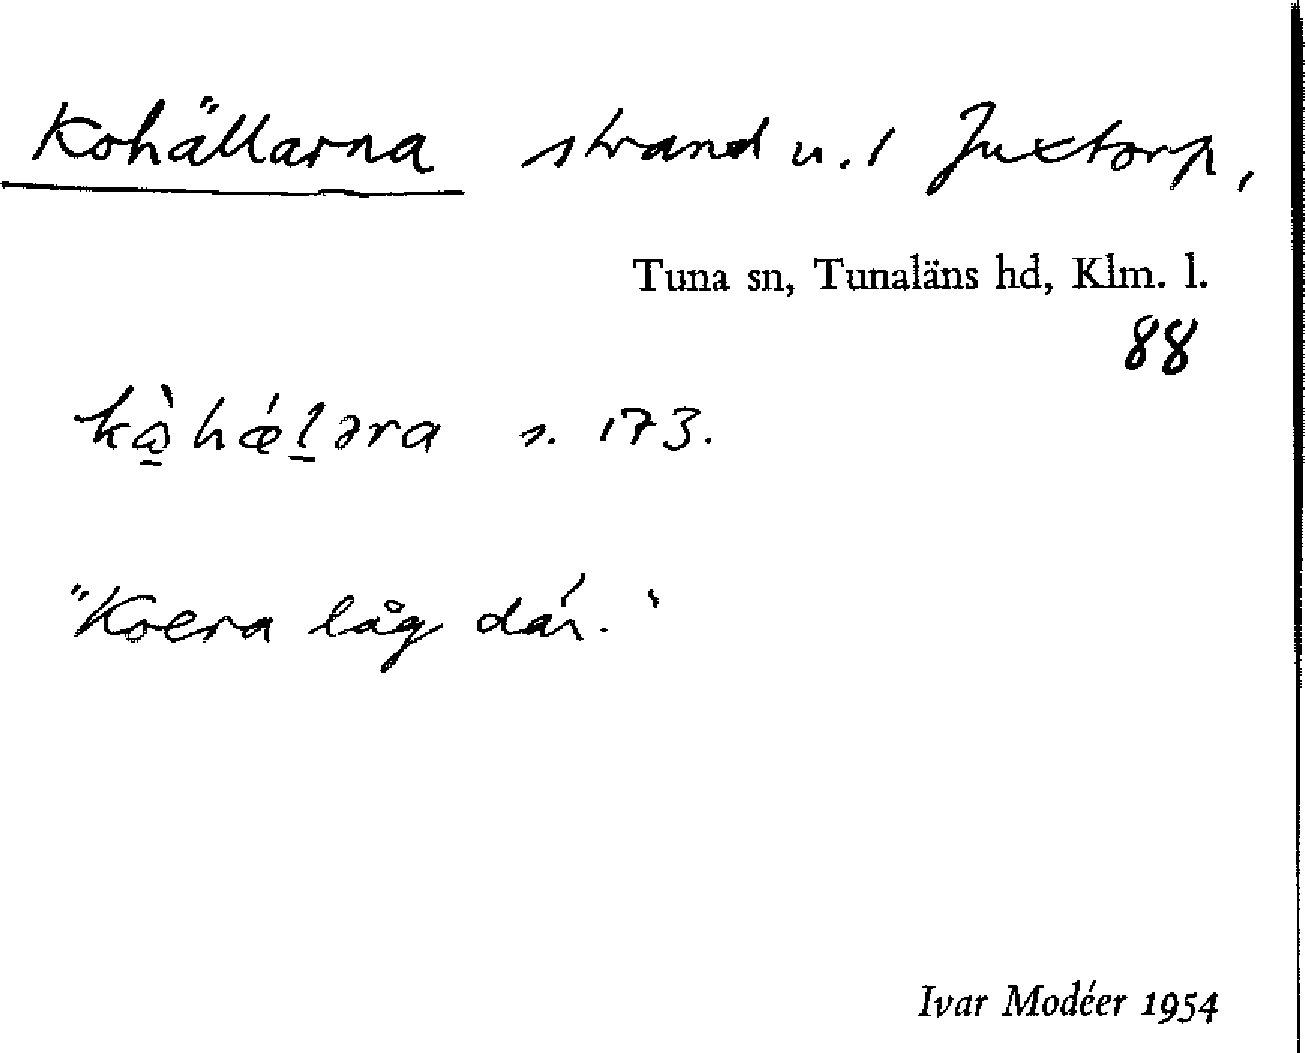 Kohällarna strand u. / Juxtorp,
Tuna sn, Tunaläns hd, Klm. l.
88
kò̱hǽl̲əra s. 173.
"Koera låg dár."
Ivar Modéer 1954